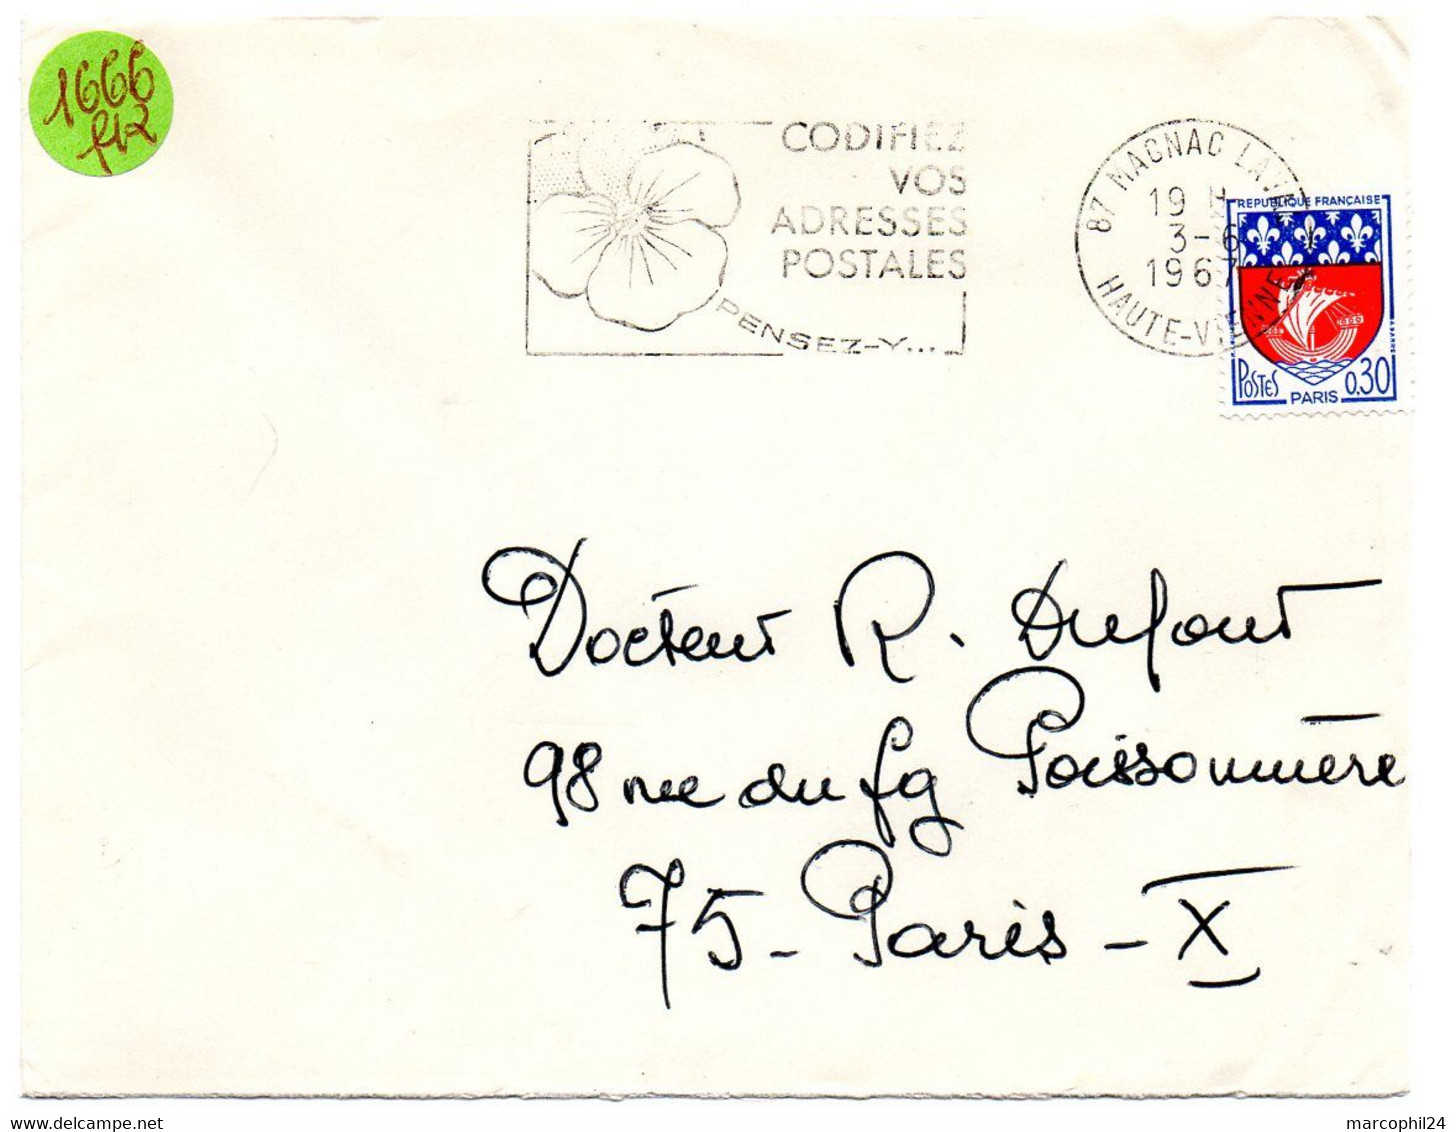 1666
f12
CODIFIEZ
VOS
ADRESSES
POSTALES
PENSEZ-Y...
87 MAGNAC LAVAL
19 H
3-6
1967
HAUTE-VIENNE
REPUBLIQUE FRANÇAISE
POSTES PARIS 0.30
Docteur R. Dufour
98 rue du fg Poissonnière
75 - Paris - X
www.delcampe.net
marcophil24